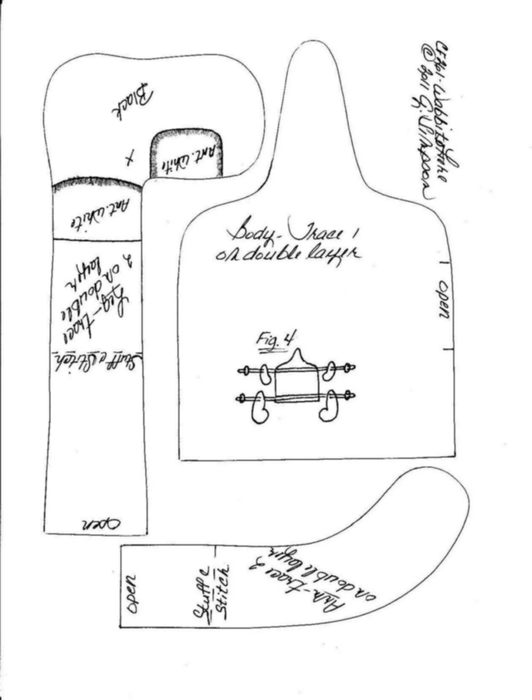 © 2011 G. Simpson
Black
Ant. White
x
Ant. White
Leg-trace
2 on double
layer
Stuff & Stitch
open
Body-Trace 1
on double layer
open
Fig. 4
open
Stuff &
Stitch
Arm-trace 2
on double layer